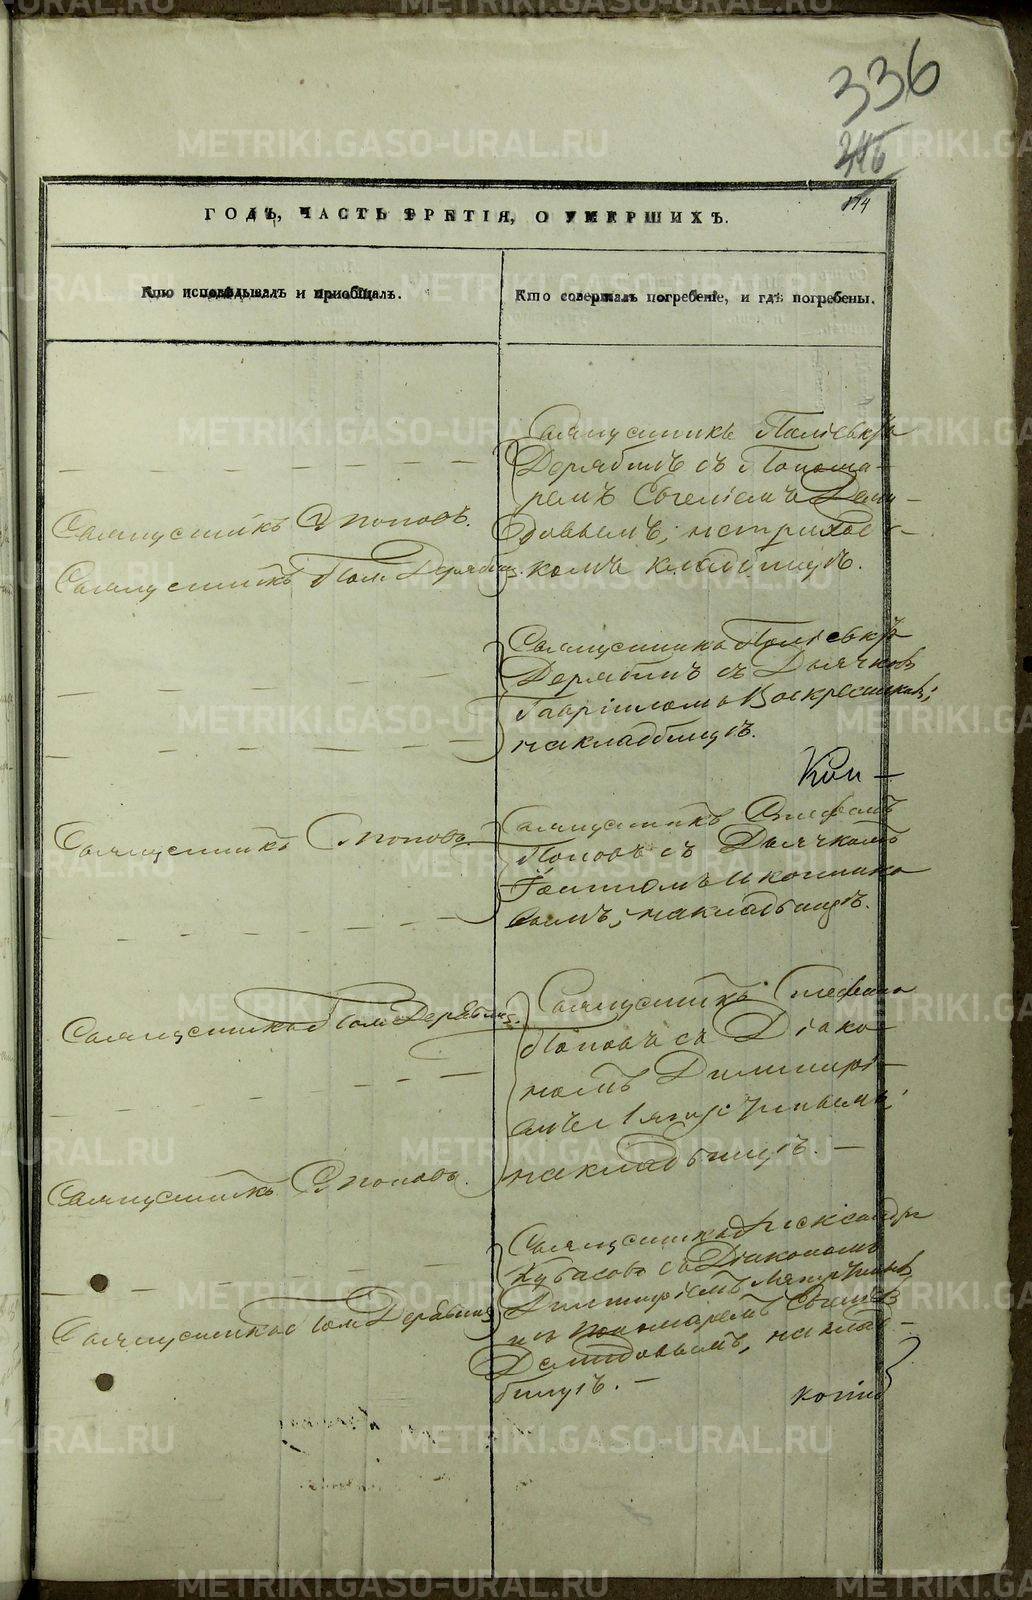 336
346
174
ГОДЪ, ЧАСТЬ ТРЕТІЯ, О УМЕРШИХЪ.
Кто исповѣдывалъ и пріобщалъ.
Кто совершалъ погребеніе, и гдѣ погребены.
Священникъ Поліевктъ
Дерябинъ съ Понома-
ремъ Евгеніемъ Деми-
довымъ, на приход-
скомъ кладбищѣ.
Священникъ С Поповъ.
Священникъ Пол. Дерябинъ.
Священникъ Поліевктъ
Дерябинъ съ Дьячкомъ
Гавріиломъ Воскресенскимъ;
на кладбищѣ.
Коп -
Священникъ С Поповъ.
Священникъ Стефанъ
Поповъ съ Дьячкомъ
Іоанномъ Иконнико
вымъ, на кладбищѣ.
Священникъ Пол. Дерябинъ.
Священникъ Стефанъ
Поповъ съ Діако-
номъ Димитрі-
емъ Ляпустинымъ;
на кладбищѣ. -
Священникъ С Поповъ.
Священникъ Александръ
Кубасовъ съ Діакономъ
Димитріемъ Ляпустинымъ
и съ пономаремъ Евгеніемъ
Демидовымъ, на клад-
бищѣ. -
Священникъ Пол. Дерябинъ
METRIKI.GASO-URAL.RU